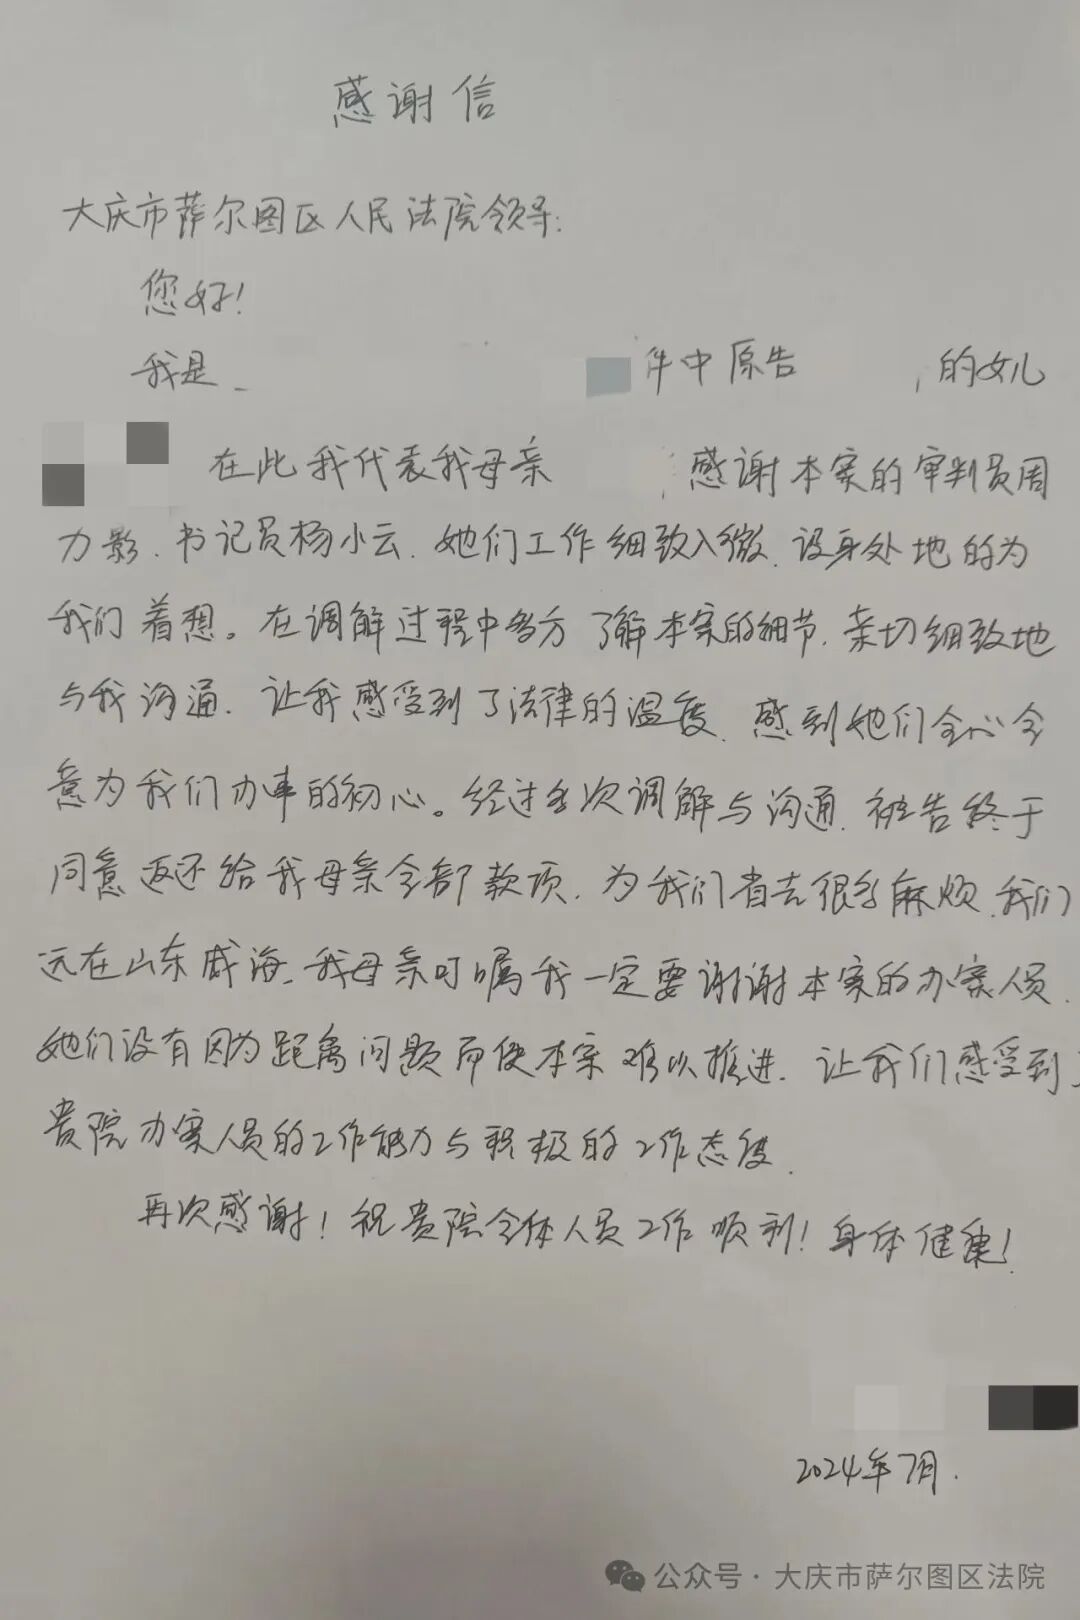 感谢信
大庆市萨尔图区人民法院领导:
您好!
我是 件中原告 的女儿
在此我代表我母亲 感谢本案的审判员周
力影、书记员杨小云、她们工作细致入微、设身处地的为
我们着想。在调解过程中多方了解本案的细节、亲切细致地
与我沟通、让我感受到了法律的温度、感到她们全心全
意为我们办事的初心。经过多次调解与沟通、被告终于
同意返还给我母亲全部款项、为我们省去很多麻烦、我们
远在山东威海、我母亲叮嘱我一定要谢谢本案的办案人员、
她们没有因为距离问题而使本案难以推进、让我们感受到了
贵院办案人员的工作能力与积极的工作态度、
再次感谢!祝贵院全体人员工作顺利!身体健康!
2024年7月.
公众号·大庆市萨尔图区法院